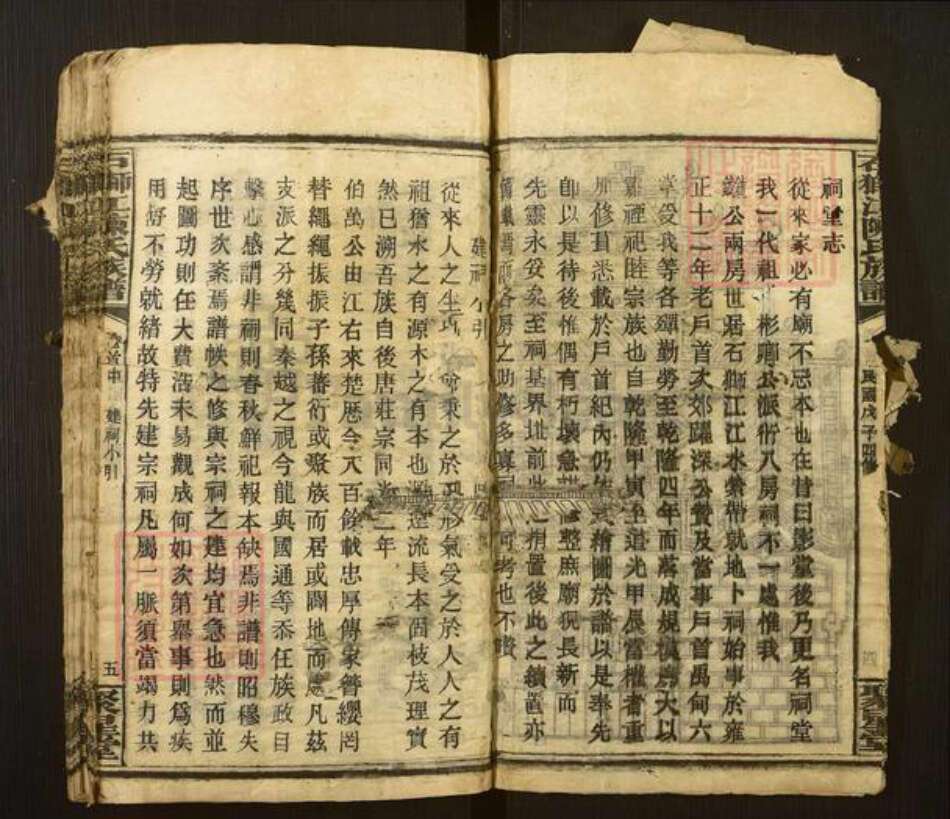 石獅江陳氏族譜
民國戊子四修
四
聚星堂
祠堂志
從來家必有廟不忘本也在昔曰影堂後乃更名祠堂
我一代祖 彬 公派衍八房祠不一處惟我
公兩房世居石獅江江水縈帶就地卜祠始事於雍
正十二年老戶首次郊躍深公贊及當事戶首禹甸六
掌受我等各殫勤勞至乾隆四年而落成規模廣大以
禋祀睦宗族也自乾隆甲寅至道光甲辰當權者重
修葺悉載於戶首紀內仍 繪圖於譜以是奉先
以是待後惟偶有朽壞急 修整庶廟貌長新而
先靈永妥矣至祠基界址前此之捐置後此之續置亦
各房之助修多寡 可考也不贅
建祠小引
從來人之生 秉之於 氣受之於人人之有
祖猶水之有源木之有本也源遠流長本固枝茂理實
然已溯吾族自後唐莊宗同光二年
伯萬公由江右來楚歷今八百餘載忠厚傳家簪纓罔
替繩繩振振子孫蕃衍或聚族而居或闢地而處凡茲
支派之分幾同秦越之視今龍與國通等忝任族政目
擊心感謂非祠則春秋鮮祀報本缺焉非譜則昭穆失
序世次紊焉譜帙之修與宗祠之建均宜急也然而並
起圖功則任大費浩未易觀成何如次第舉事則為疾
用舒不勞就緒故特先建宗祠凡屬一脈須當竭力共
石獅江陳氏族譜
卷首中
建祠小引
五
聚星堂